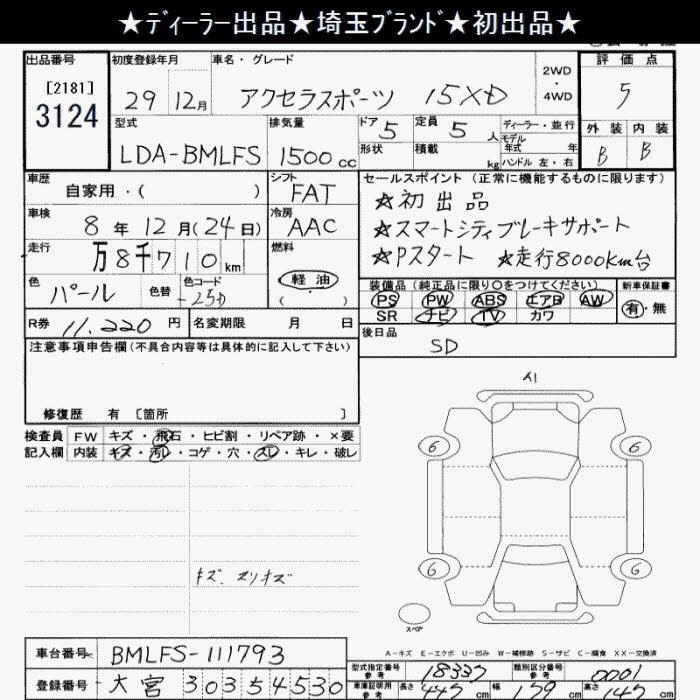 ★ディーラー出品★埼玉ブランド★初出品★
出品番号
[2181]
3124
初度登録年月
29 12月
車名・グレード
アクセラスポーツ 15XD
2WD
・
4WD
評価点
5
外装 内装
B B
型式
LDA-BMLFS
排気量
1500 cc
ドア 5
形状
定員 5 人
積載 kg
ディーラー・並行
モデル
年式 年
ハンドル 左・右
車歴
自家用・( )
シフト
FAT
車検
8年 12月(24日)
冷房
AAC
走行
万8千710 km
燃料
軽油
( )
色
パール
色替
色コード
25D
R券 11,220 円
名変期限 月 日
セールスポイント (正常に機能するものに限ります)
☆初出品
☆スマートシティブレーキサポート
☆Pスタート ☆走行8000Km台
装備品 (純正品に限り○をつけてください)
PS PW ABS エアB AW
SR ナビ TV カワ
新車保証書
有・無
後日品
SD
注意事項申告欄 (不具合内容等は具体的に記入して下さい)
修復歴 有 〔箇所 〕
検査員
記入欄
FW キズ・飛石・ヒビ割・リペア跡・×要
内装 キズ・汚レ・コゲ・穴・スレ・キレ・破レ
キズ、スリキズ
6 6
6 6
スペア
A-キズ E-エクボ U-凹み W-補修跡 S-サビ C-腐食 XX-交換済
車台番号 BMLFS-111793
登録番号 大宮 303 5 4530
型式指定番号
参考
18337
類別区分番号
参考
0001
車証明用
参考
長さ 447 cm 幅 179 cm 高さ 147 cm